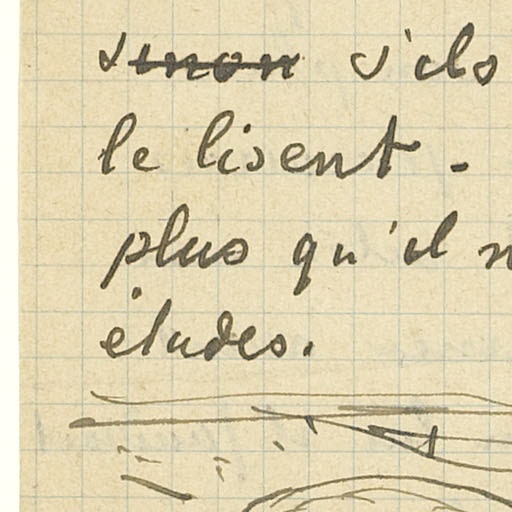 sinon s'ils
le lisent -
plus qu'il n
études.